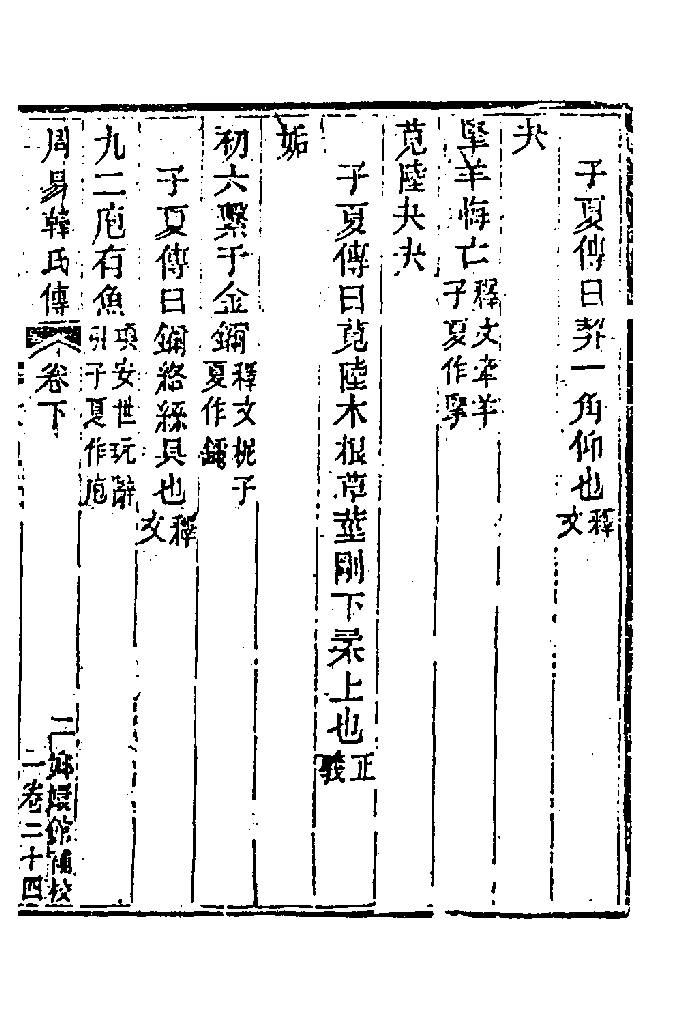 子夏傳曰契一角仰也釋文
夬
掔羊悔亡釋文牽羊子夏作掔
莧陸夬夬
子夏傳曰莧陸木根草莖剛下柔上也正義
姤
初六繫于金鑈釋文柅子夏作鑈
子夏傳曰鑈絡絲具也釋文
九二庖有魚項安世玩辭引子夏作庖
周易韓氏傳 卷下 二 嫏嬛館補校
二卷二十四